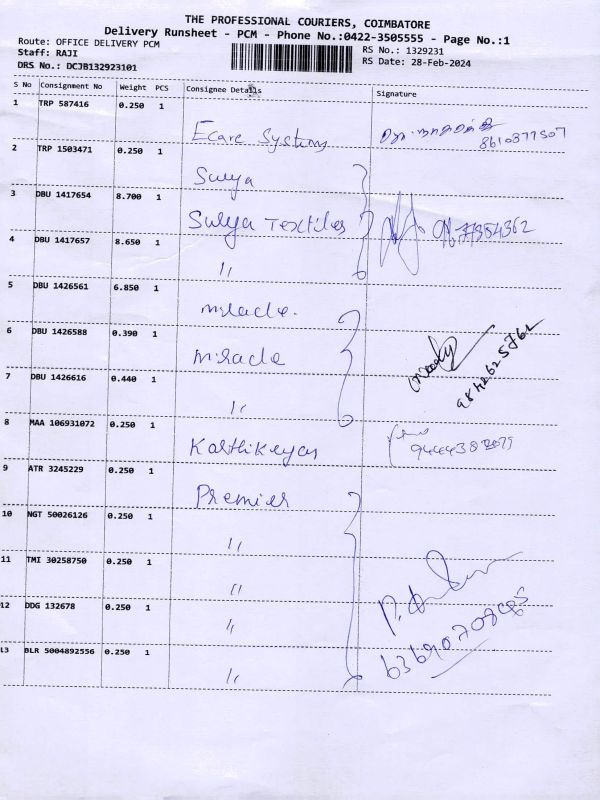 THE PROFESSIONAL COURIERS, COIMBATORE
Delivery Runsheet - PCM - Phone No.:0422-3505555 - Page No.:1
Route: OFFICE DELIVERY PCM
RS No.: 1329231
Staff: RAJI
RS Date: 28-Feb-2024
DRS No.: DCJB132923101
S No Consignment No Weight PCS Consignee Details Signature
1 TRP 587416 0.250 1 Ecare Systems 8610377507
2 TRP 1503471 0.250 1 Surya
3 DBU 1417654 8.700 1 Surya Textiles
4 DBU 1417657 8.650 1 "
5 DBU 1426561 6.850 1 miracle.
6 DBU 1426588 0.390 1 miracle
7 DBU 1426616 0.440 1 "
9842625762
8 MAA 106931072 0.250 1 Karthikeyan
9 ATR 3245229 0.250 1 Premier
10 NGT 50026126 0.250 1 "
11 TMI 30258750 0.250 1 "
12 DDG 132678 0.250 1 "
13 BLR 5004892556 0.250 1 "